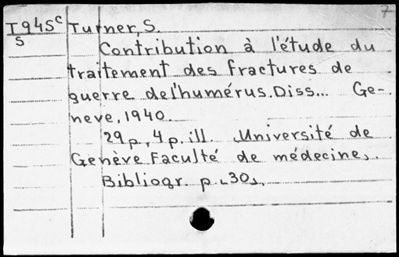 7
I945c Turner, S.
S Contribution à l'étude du
traitement des fractures de
guerre de l'humérus. Diss... Ge-
nève, 1940.
29 p., 4 p. ill. Université de
Genève. Faculté de médecine.
Bibliogr. p. 30.